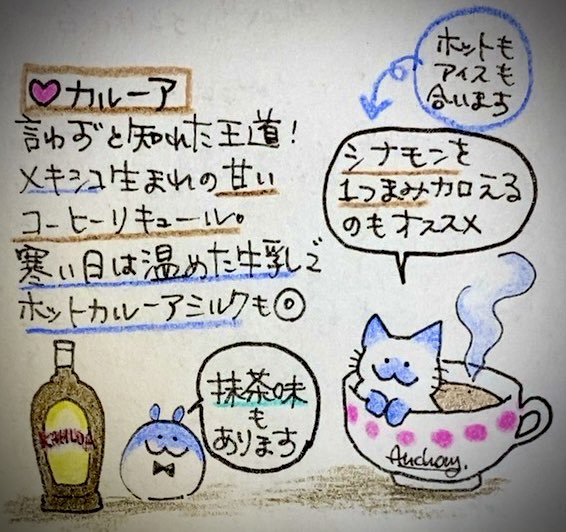 カルーア
言わずと知れた王道!
メキシコ生まれの甘い
コーヒーリキュール。
寒い日は温めた牛乳で
ホットカルーアミルクも◎
ホットも
アイスも
合います
シナモンを
1つまみ加える
のもオススメ
抹茶味
も
あります
KAHLUA